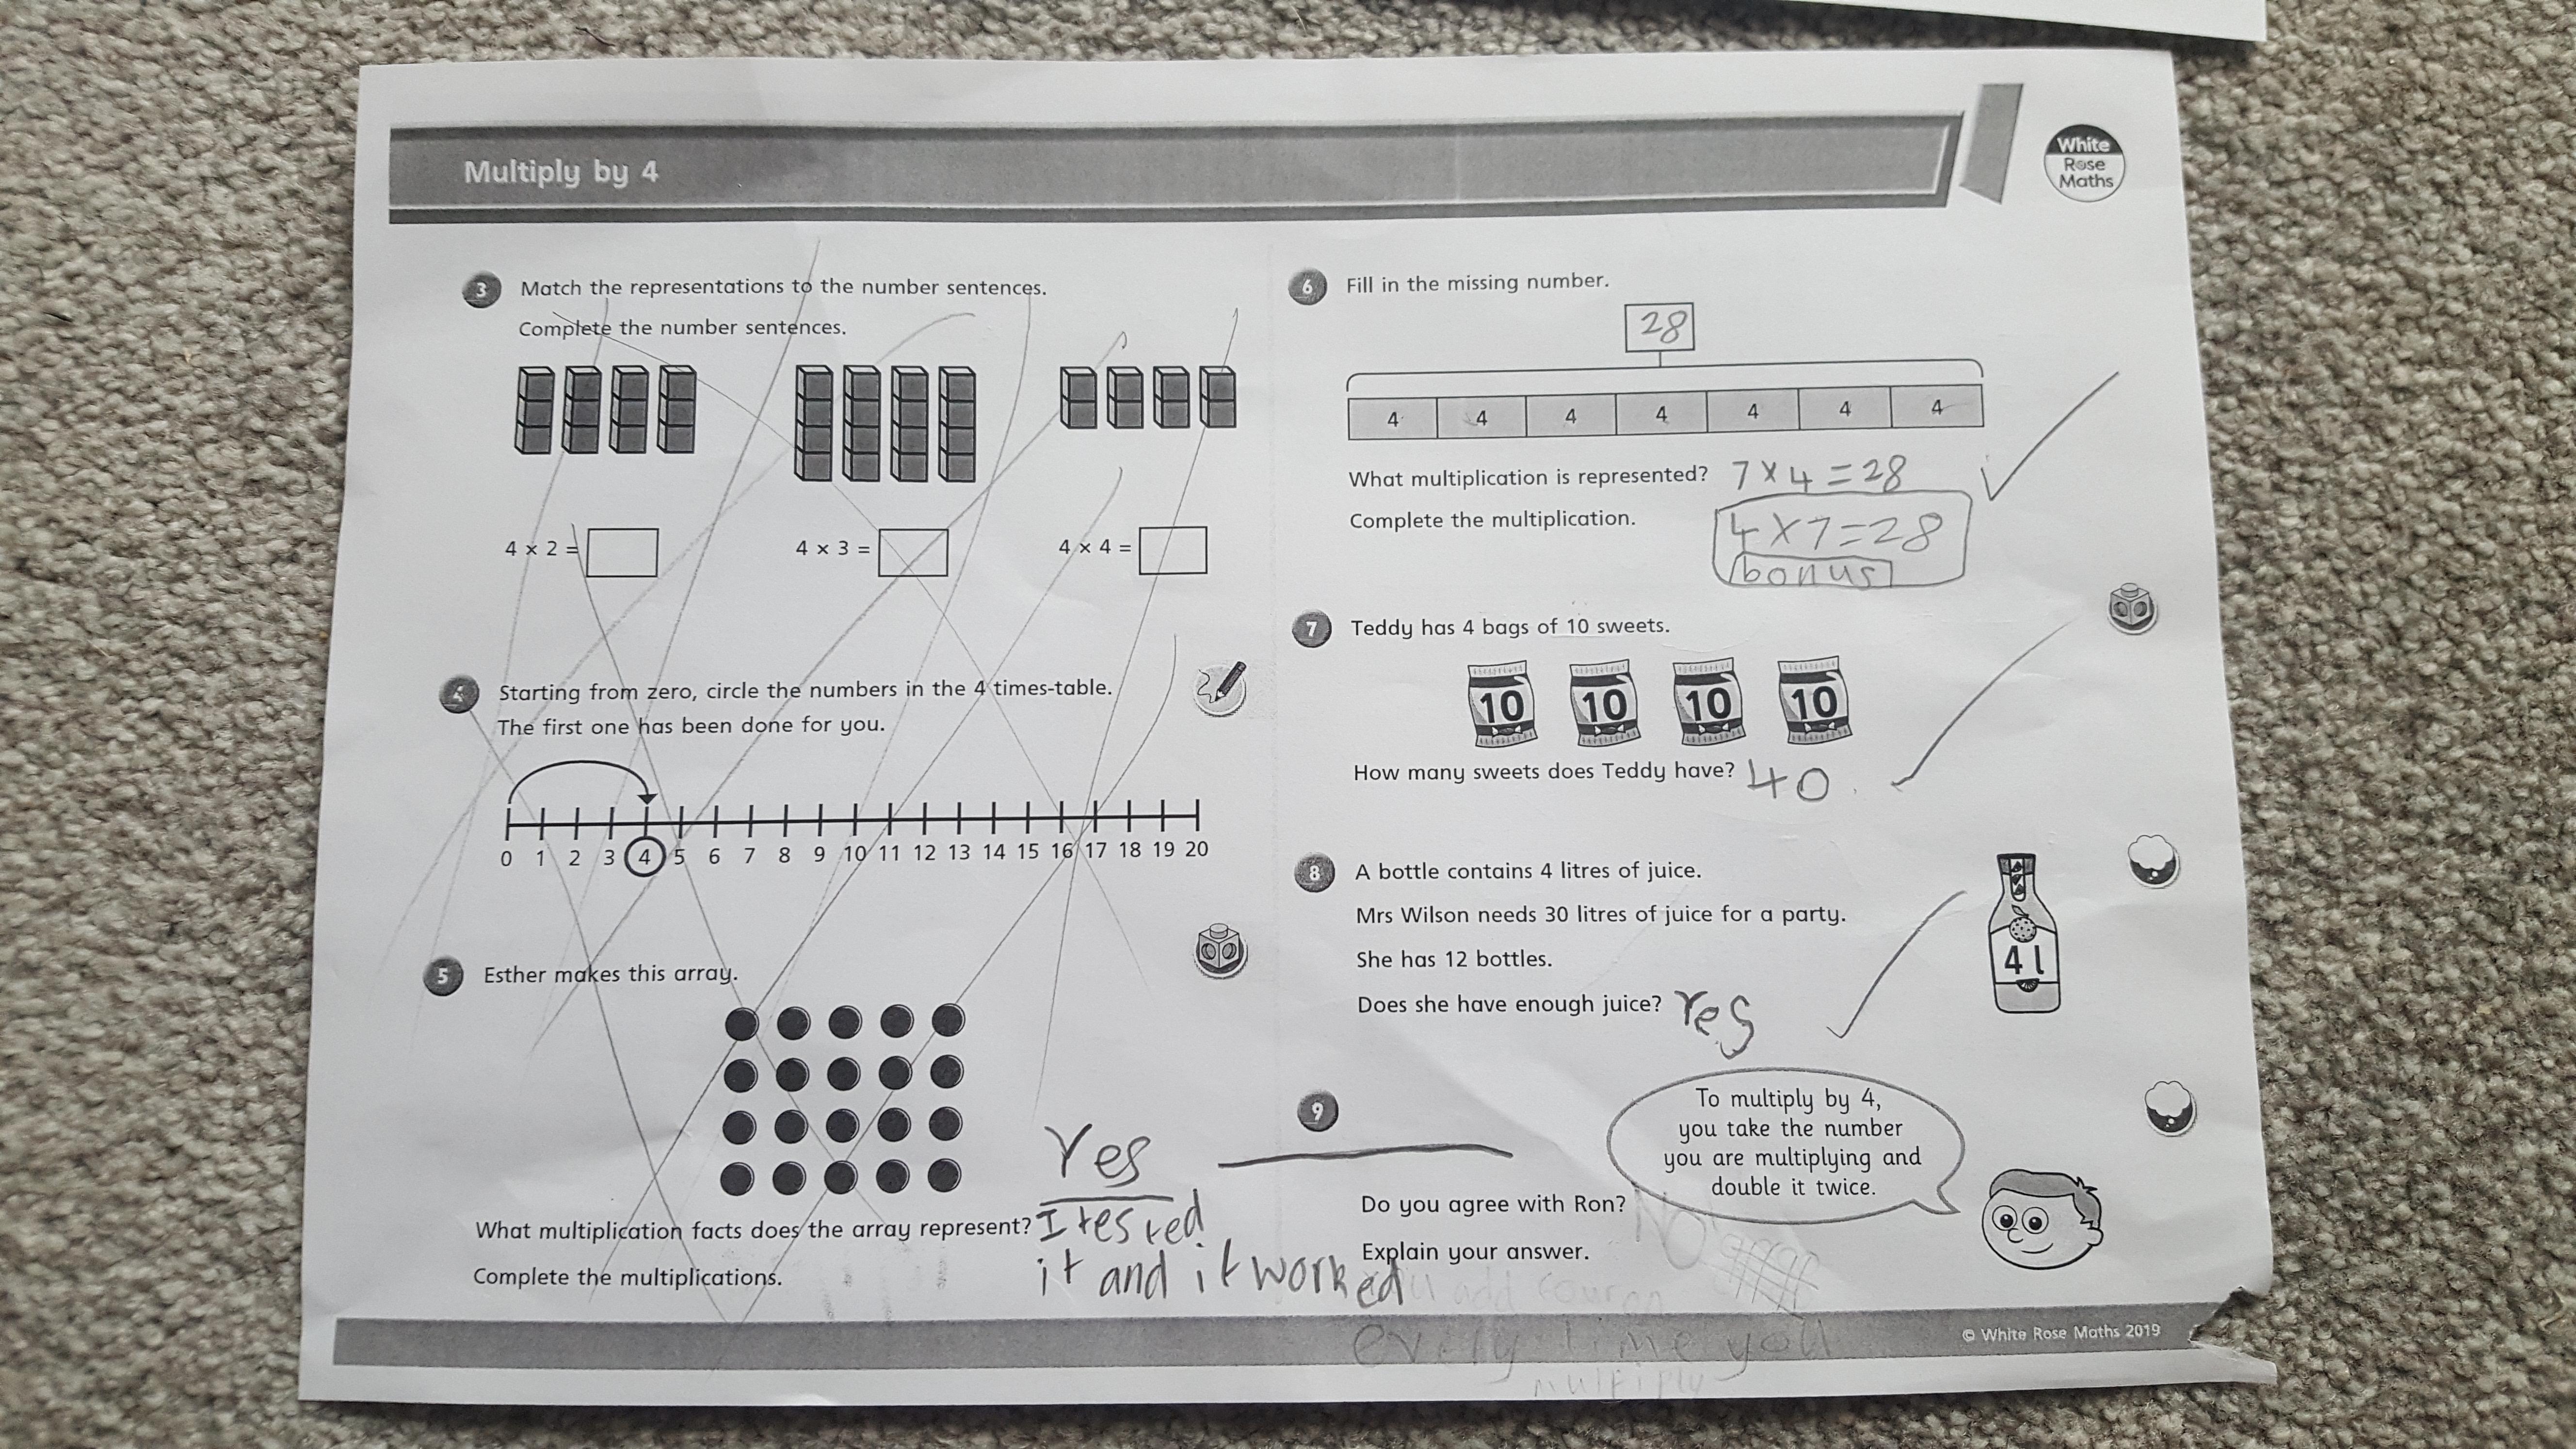 Multiply by 4
White
Rose
Maths
3 Match the representations to the number sentences.
Complete the number sentences.
4 × 2 =
4 × 3 =
4 × 4 =
4 Starting from zero, circle the numbers in the 4 times-table.
The first one has been done for you.
0 1 2 3 4 5 6 7 8 9 10 11 12 13 14 15 16 17 18 19 20
5 Esther makes this array.
What multiplication facts does the array represent?
Complete the multiplications.
6 Fill in the missing number.
28
4 4 4 4 4 4 4
What multiplication is represented? 7 × 4 = 28
Complete the multiplication. 4 × 7 = 28
bonus
7 Teddy has 4 bags of 10 sweets.
10 10 10 10
How many sweets does Teddy have? 40
8 A bottle contains 4 litres of juice.
Mrs Wilson needs 30 litres of juice for a party.
She has 12 bottles.
Does she have enough juice? Yes
4 l
9
To multiply by 4,
you take the number
you are multiplying and
double it twice.
Do you agree with Ron? No
Explain your answer.
Yes
I tested
it and it worked
add four on
every time you
multiply
© White Rose Maths 2019